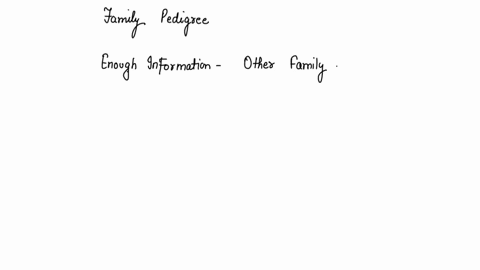 Family Pedigree
Enough Information - Other Family .